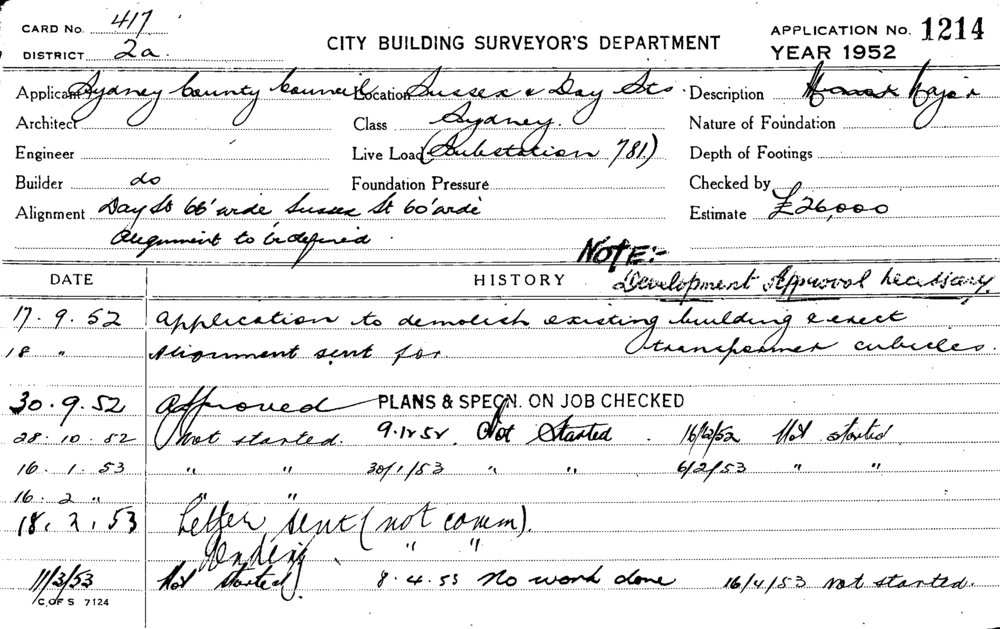 CARD No. 417
DISTRICT 2a.
CITY BUILDING SURVEYOR'S DEPARTMENT
APPLICATION No. 1214
YEAR 1952
Applicant Sydney County Council Location Sussex & Day Sts. Description Major
Architect Class Sydney. Nature of Foundation
Engineer Live Load (Substation 781.) Depth of Footings
Builder do Foundation Pressure Checked by
Alignment Day St 66' wide Sussex St 60' wide Estimate £26,000
Alignment to be defined.
NOTE:-
DATE HISTORY Development Approval necessary.
17.9.52 Application to demolish existing building & erect
18 " Alignment sent for transformer cubicles.
30.9.52 Approved PLANS & SPECN. ON JOB CHECKED
28.10.52 Not started. 9.12.52. Not Started. 16/12/52 Not started.
16.1.53 " " 30/1/53 " " 6/2/53 " "
16.2 " " "
18.2.53 Letter sent (not comm).
Pending. " "
11/3/53 Not started. 8.4.53 No work done 16/4/53 not started.
C. OF S 7124